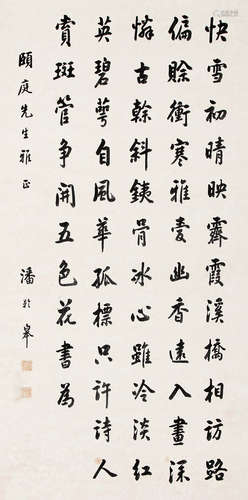 快雪初晴映霽霞溪橋相訪路
偏賒衝寒雅愛幽香遠入畫深
憐古榦斜銕骨冰心雖冷淡紅
英碧萼自風華孤標只許詩人
賞斑管爭開五色花書為
頤庭先生雅正
潘齡皋